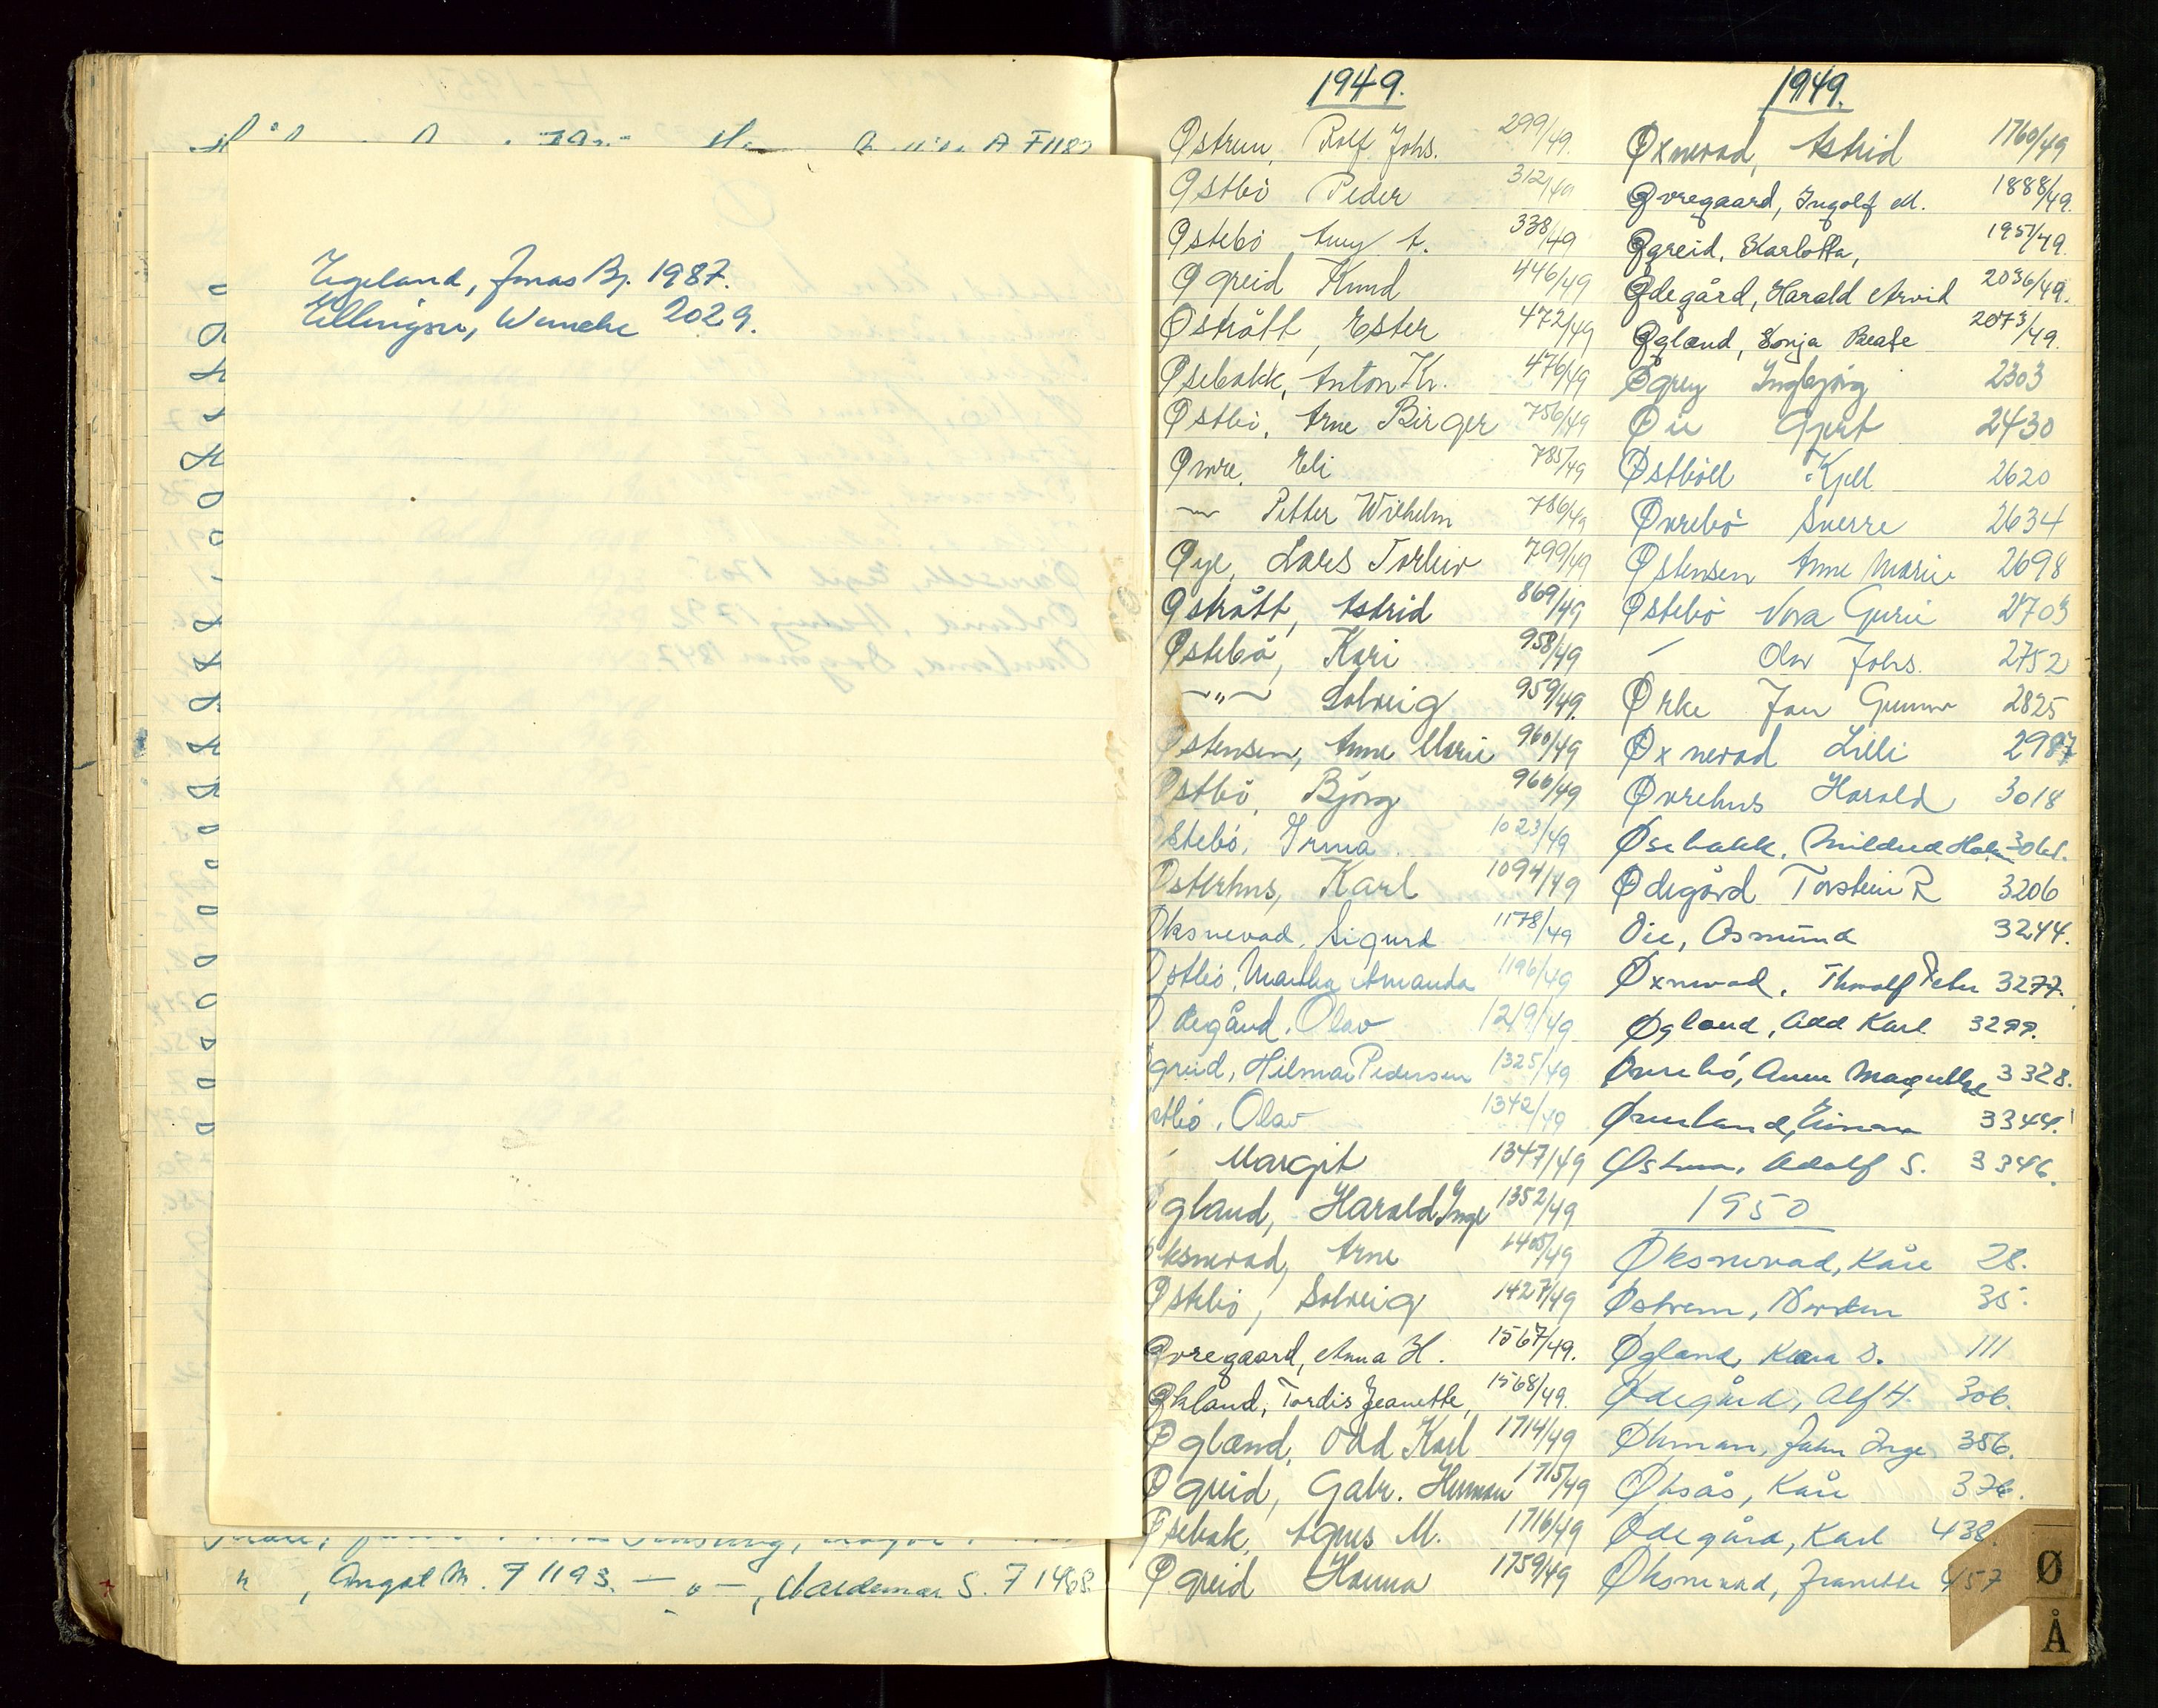 Egeland, Jonas Bj. 1987.
Ellingsen, Wenche 2029.
", Ingol M. F 1193. — " —, Valdemar S. F 1468.
1949.
Østrem, Rolf Johs. 299/49.
Østbö Peder 312/49
Østebö Amy A. 338/49
Øgreid Knud 446/49
Østrått, Ester 472/49
Øsebakk, Anton Kr. 476/49
Østbö, Arne Birger 756/49
Øvre, Eli 785/49
— Petter Wilhelm 786/49
Øye, Lars Torleiv 799/49
Østrått, Astrid 869/49
Østebö, Kari 958/49
—"— Solveig 959/49.
Østensen, Anne Marie 960/49
Østbö, Björg 966/49
Østebö, Irma 1023/49
Østerhus, Karl 1094/49
Øksnevad, Sigurd 1178/49
Østbö, Martha Amanda 1196/49
Ødegård, Olav 1219/49
Øgreid, Hilmar Pedersen 1325/49
Østbö, Olav 1342/49
" Margit 1347/49
Øgland, Harald Inge 1352/49
Øksnevad, Arne 1405/49
Østebö, Solveig 1427/49
Øvregaard, Anna H. 1567/49.
Økland, Tordis Jeanette, 1568/49.
Øgland, Odd Karl 1714/49
Øgreid, Gabr. Herman 1715/49
Øsebak, Agnes M. 1716/49
Øgreid Hanna 1759/49
1949.
Øxnevad, Astrid 1760/49
Øvregaard, Ingolf M. 1888/49.
Øgreid, Karlotta, 1951/49.
Ødegård, Harald Arvid 2036/49.
Øgland, Sonja Beate 2073/49.
Øgrey Ingbjørg 2303
Øie Gjert 2430
Østböll Kjell 2620
Øvrebö Sverre 2634
Østensen Anne Marie 2698
Østebö Nora Gurie 2703
— Olav Johs. 2752
Ørke Jan Gunnar 2825
Øxnevad Lilli 2987
Øvrehus Harald 3018
Øsebakk, Mildred Holm 3061.
Ødegård Torstein R 3206
Øie, Asmund 3244.
Øxnevad, Thoralf Peter 3277.
Øgland, Odd Karl 3299.
Øvrebö, Anne Magrethe 3328.
Øverland, Einar 3344.
Østman, Adolf S. 3346.
1950
Øksnevad, Kåre 28.
Østrem, Norden 35.
Øgland, Klara S. 111
Ødegård, Alf H. 306.
Øhman, John Inge 356.
Øksås, Kåre 376.
Ødegård, Karl 438.
Øksnevad, Jeanette 457
Ø
Å